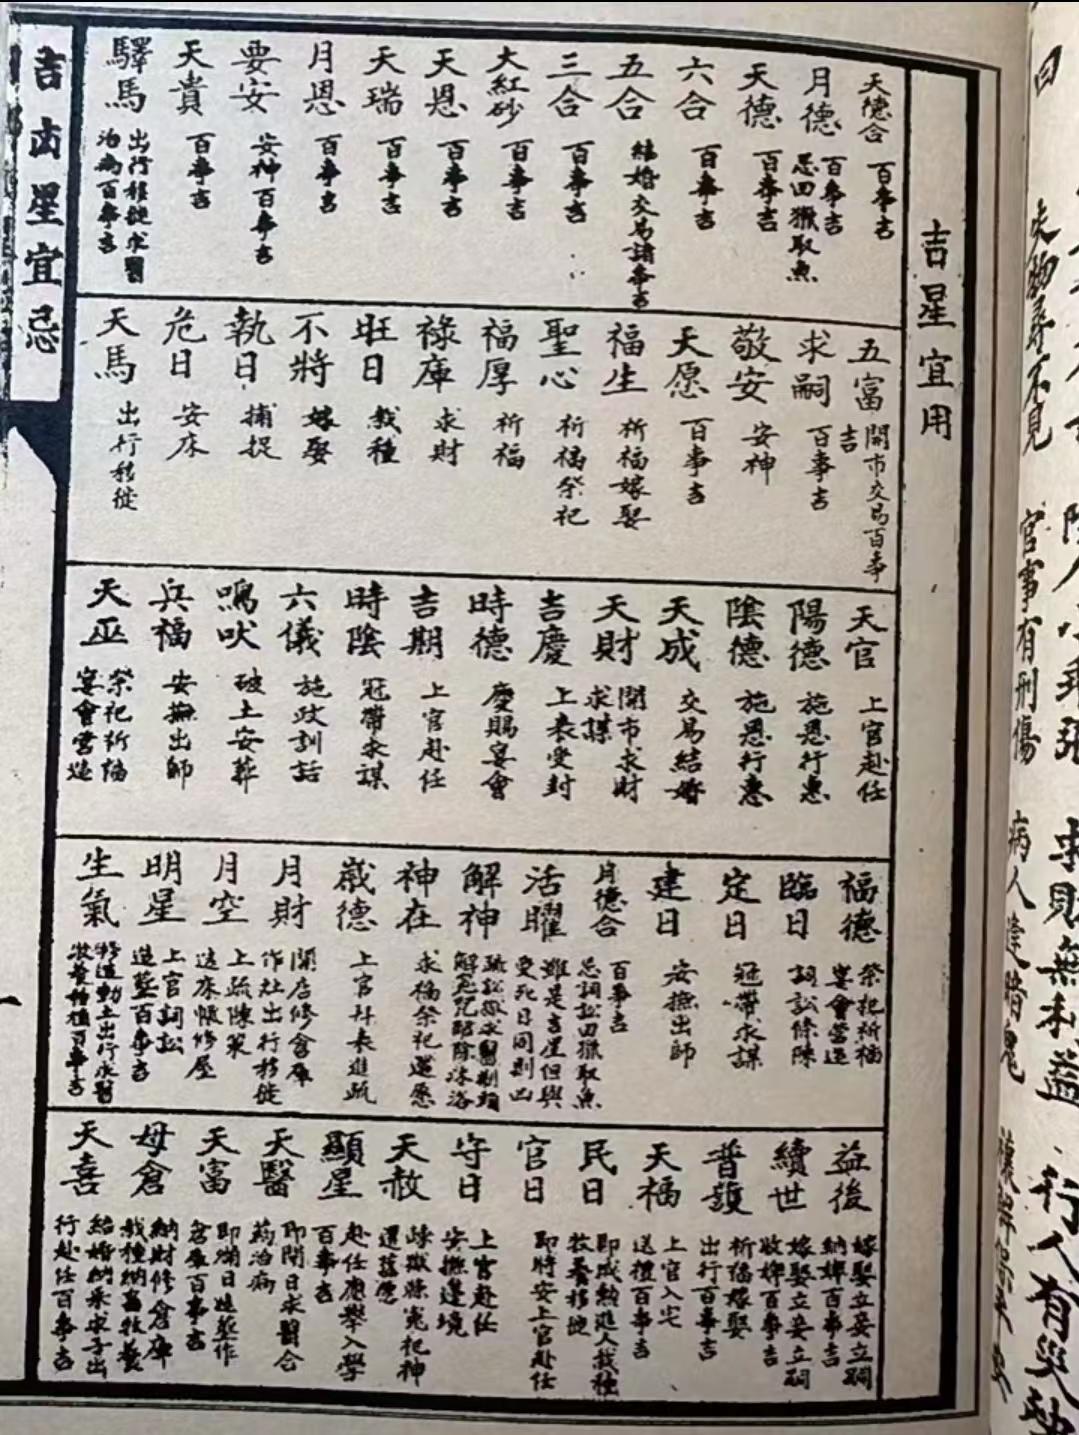 吉星宜用
天德合 百事吉
月德 百事吉 忌田獵取魚
天德 百事吉
六合 百事吉
五合 結婚交易諸事吉
三合 百事吉
大紅砂 百事吉
天恩 百事吉
天瑞 百事吉
月恩 百事吉
要安 安神百事吉
天貴 百事吉
驛馬 出行移徙求醫治病百事吉
五富 開市交易百事吉
求嗣 百事吉
敬安 安神
天愿 百事吉
福生 祈福嫁娶
聖心 祈福祭祀
福厚 祈福
祿庫 求財
旺日 栽種
不將 嫁娶
執日 捕捉
危日 安床
天馬 出行移徙
天官 上官赴任
陽德 施恩行惠
陰德 施恩行惠
天成 交易結婚
天財 開市求財求謀
吉慶 上表受封
時德 慶賜宴會
吉期 上官赴任
時陰 冠帶求謀
六儀 施政訓話
鳴吠 破土安葬
兵福 安撫出師
天巫 祭祀祈福宴會營造
福德 祭祀祈福宴會營造
臨日 詞訟條陳
定日 冠帶求謀
建日 安撫出師
月德合 百事吉 忌詞訟田獵取魚
活曜 雖是吉星但與受死日同則凶
解神 疏訟獄求醫剃頭解冤咒咀除沐浴
神在 求福祭祀還愿
歲德 上官升表進疏
月財 開店修倉庫作灶出行移徙
月空 上疏陳策造床帳修屋
明星 上官詞訟造葬百事吉
生氣 修造動土出行求醫牧養種植百事吉
益後 嫁娶立妾立嗣納婢百事吉
續世 嫁娶立妾立嗣收婢百事吉
普護 祈福嫁娶出行百事吉
天福 上官入宅送禮百事吉
民日 即成納進人栽種牧養移徙
官日 即將安上官赴任
守日 上官赴任安撫邊境
天赦 疎獄除冤祀神還舊愿
顯星 赴任應舉入學百事吉
天醫 即閉日求醫合葯治病
天富 即滿日造葬作倉庫百事吉
母倉 納財修倉庫栽種納畜牧養
天喜 結婚納采求子出行赴任百事吉
吉凶星宜忌
一
曰
失物尋不見
官事有刑傷
病人逢暗鬼
求財無利益
行人有災